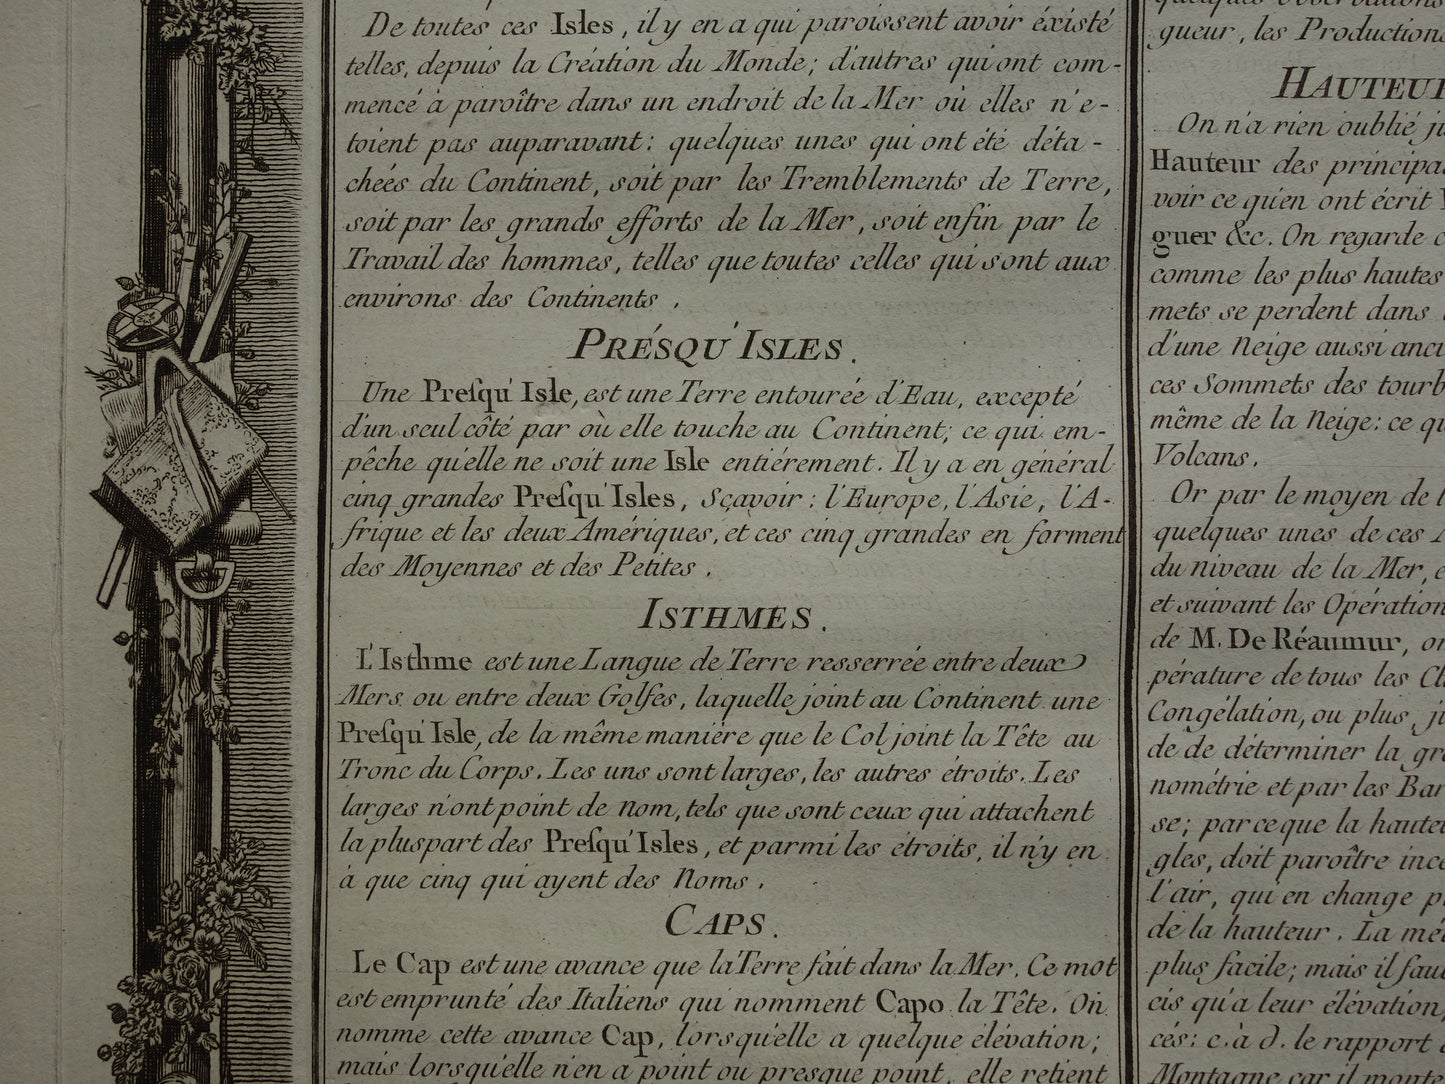 De toutes ces Isles, il y en a qui paroissent avoir éxisté
telles, depuis la Création du Monde; d'autres qui ont com-
mencé à paroître dans un endroit de la Mer où elles n'e-
toient pas auparavant: quelques unes qui ont été déta-
chées du Continent, soit par les Tremblements de Terre,
soit par les grands efforts de la Mer, soit enfin par le
Travail des hommes, telles que toutes celles qui sont aux
environs des Continents.
PRÉSQU'ISLES.
Une Preſqu'Isle, est une Terre entourée d'Eau, excepté
d'un seul côté par où elle touche au Continent; ce qui em-
pêche qu'elle ne soit une Isle entiérement. Il y a en général
cinq grandes Preſqu'Isles, Sçavoir: l'Europe, l'Asie, l'A-
frique et les deux Amériques, et ces cinq grandes en forment
des Moyennes et des Petites.
ISTHMES.
L'Isthme est une Langue de Terre resserrée entre deux
Mers ou entre deux Golfes, laquelle joint au Continent une
Preſqu'Isle, de la même maniére que le Col joint la Tête au
Tronc du Corps. Les uns sont larges, les autres étroits. Les
larges n'ont point de nom, tels que sont ceux qui attachent
la pluspart des Preſqu'Isles, et parmi les étroits, il n'y en
à que cinq qui ayent des Noms.
CAPS.
Le Cap est une avance que la Terre fait dans la Mer. Ce mot
est emprunté des Italiens qui nomment Capo la Tête. On
nomme cette avance Cap, lorsqu'elle a quelque élévation;
mais lorsqu'elle n'en a point ou presque point, elle retient
gueur, les Production
HAUTEU
On n'a rien oublié
Hauteur des principa
voir ce qu'en ont écrit
guer &c. On regarde
comme les plus hautes
mets se perdent dans
d'une Neige aussi anci
ces Sommets des tourb
même de la Neige: ce qu
Volcans.
Or par le moyen de l
quelques unes de ces
du niveau de la Mer,
et suivant les Opération
de M. De Réaumur, on
pérature de tous les Cl
Congélation, ou plus j
de de déterminer la gr
nométrie et par les Bar
se; parceque la haute
gles, doit paroître ince
l'air, qui en change p
de la hauteur. La mé
plus facile; mais il fau
cis qu'a leur élévation,
cés: c. à d. le rapport
Montagne car il monte